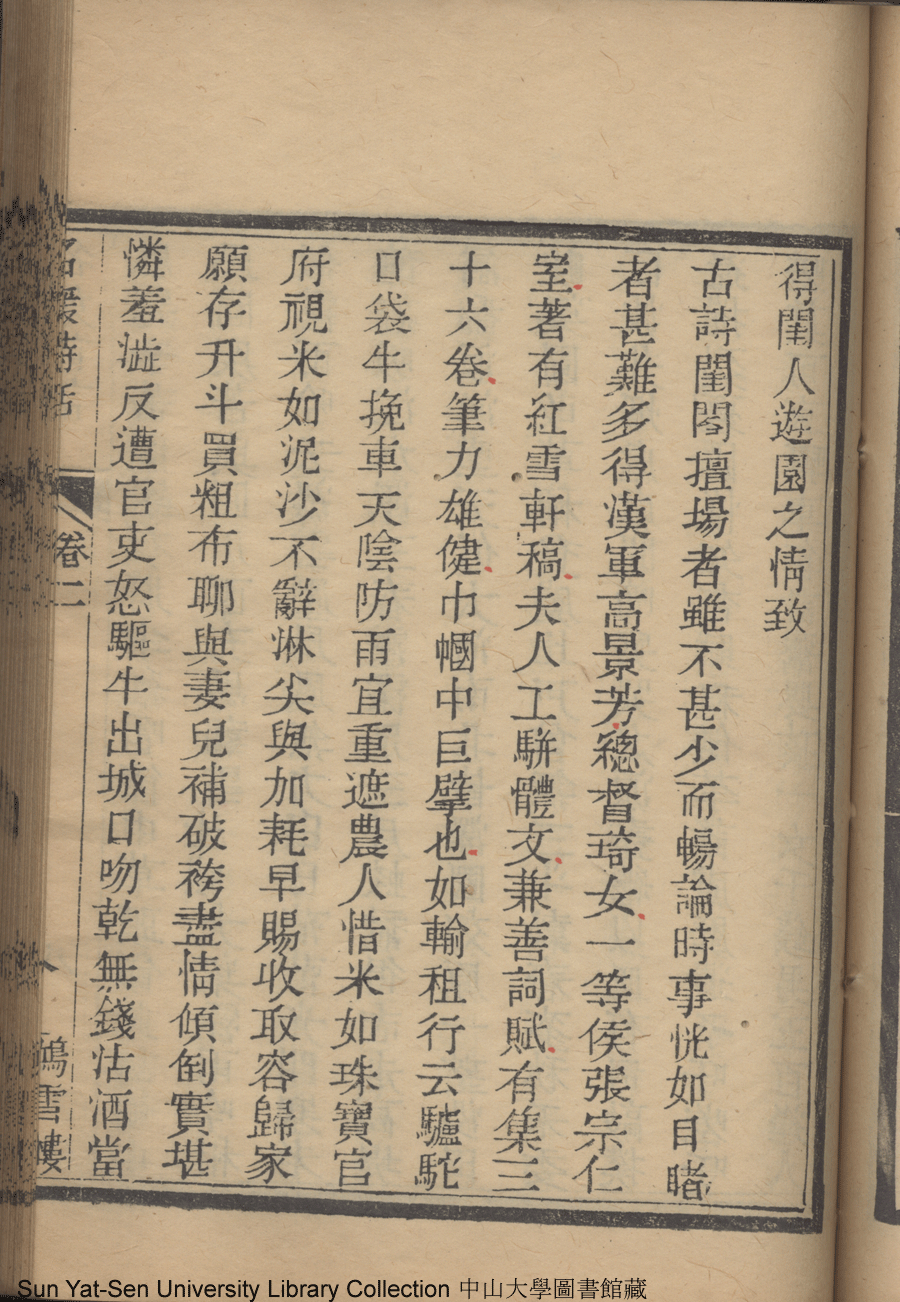 得閨人遊園之情致
古詩閨閣擅場者雖不甚少而暢論時事恍如目睹
者甚難多得漢軍高景芳總督琦女一等侯張宗仁
室著有紅雪軒稿夫人工駢體文兼善詞賦有集三
十六卷筆力雄健巾幗中巨擘也如輸租行云驢駝
口袋牛挽車天陰防雨宜重遮農人惜米如珠寶官
府視米如泥沙不辭淋尖與加耗早賜收取容歸家
願存升斗買粗布聊與妻兒補破袴盡情傾倒實堪
憐羞澁反遭官吏怒驅牛出城口吻乾無錢沽酒當
名媛詩話 卷二 八 鴻雪樓
Sun Yat-Sen University Library Collection 中山大學圖書館藏